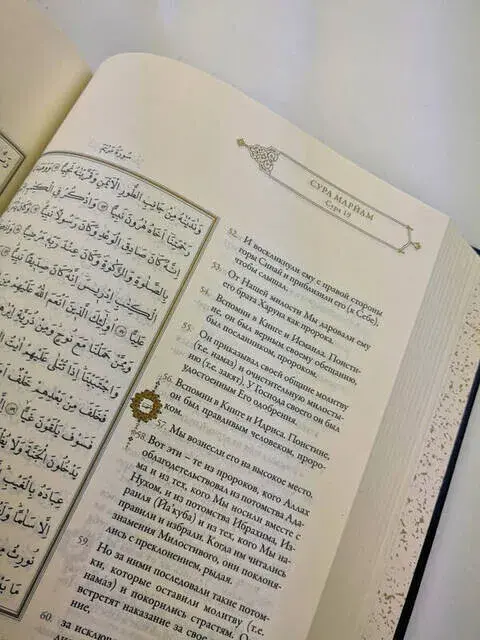 سورة مريم
وَنَٰدَيْنَٰهُ مِن جَانِبِ ٱلطُّورِ ٱلْأَيْمَنِ وَقَرَّبْنَٰهُ نَجِيًّا
أَخَاهُ هَٰرُونَ نَبِيًّا وَٱذْكُرْ فِى ٱلْكِتَٰبِ
إِنَّهُۥ كَانَ صَادِقَ ٱلْوَعْدِ وَكَانَ رَسُولًا نَّبِيًّا
بِٱلصَّلَوٰةِ وَٱلزَّكَوٰةِ وَكَانَ عِندَ رَبِّهِۦ مَرْضِيًّا
ٱلْكِتَٰبِ إِدْرِيسَ إِنَّهُۥ كَانَ صِدِّيقًا نَّبِيًّا
عَلِيًّا أُو۟لَٰٓئِكَ ٱلَّذِينَ أَنْعَمَ ٱللَّهُ عَلَيْهِم
وَمِمَّنْ حَمَلْنَا مَعَ نُوحٍ وَمِن ذُرِّيَّةِ
وَٱجْتَبَيْنَآ إِذَا تُتْلَىٰ عَلَيْهِمْ
فَخَلَفَ مِنۢ بَعْدِهِمْ
فَسَوْفَ يَلْقَوْنَ غَيًّا
يَدْخُلُونَ ٱلْجَنَّةَ وَلَا
عِبَادَهُۥ بِٱلْغَيْبِ
إِلَّا سَلَٰمًا
نُورِثُ
СУРА МАРЙАМ
Сура 19
52. И воскликнули ему с правой стороны
горы Синай и приблизили его (к Себе),
чтобы слышал.
53. От Нашей милости Мы даровали ему
его брата Харуна как пророка.
54. Вспомни в Книге и Исмаила. Поисти-
не, он был верным своему обещанию,
был посланником, пророком.
55. Он приказывал своей общине молитву
(т.е. намаз) и очистительную милость
(т.е. закят). У Господа своего он был
удостоенным Его одобрения.
56. Вспомни в Книге и Идриса. Поистине,
он был правдивым человеком, проро-
ком.
57. Мы вознесли его на высокое место.
58. Вот эти – те из пророков, кого Аллах
облагодетельствовал из потомства Ада-
ма и из тех, кого Мы носили вместе с
Нухом, и из потомства Ибрахима, Из-
раиля (Йа'куба) и из тех, кого Мы на-
правили и избрали. Когда им читались
знамения Милостивого, они поклоня-
лись с преклонением, рыдая.
59. Но за ними последовали такие потом-
ки, которые оставили молитву (т.е.
намаз) и покорились страстям. О
встретят наказание за свое
ние,
60. за исключ